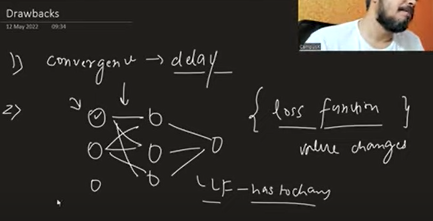 Drawbacks
12 May 2022 09:34
1) convergence → delay
2)
{ loss function }
value changes
LF - has to chang